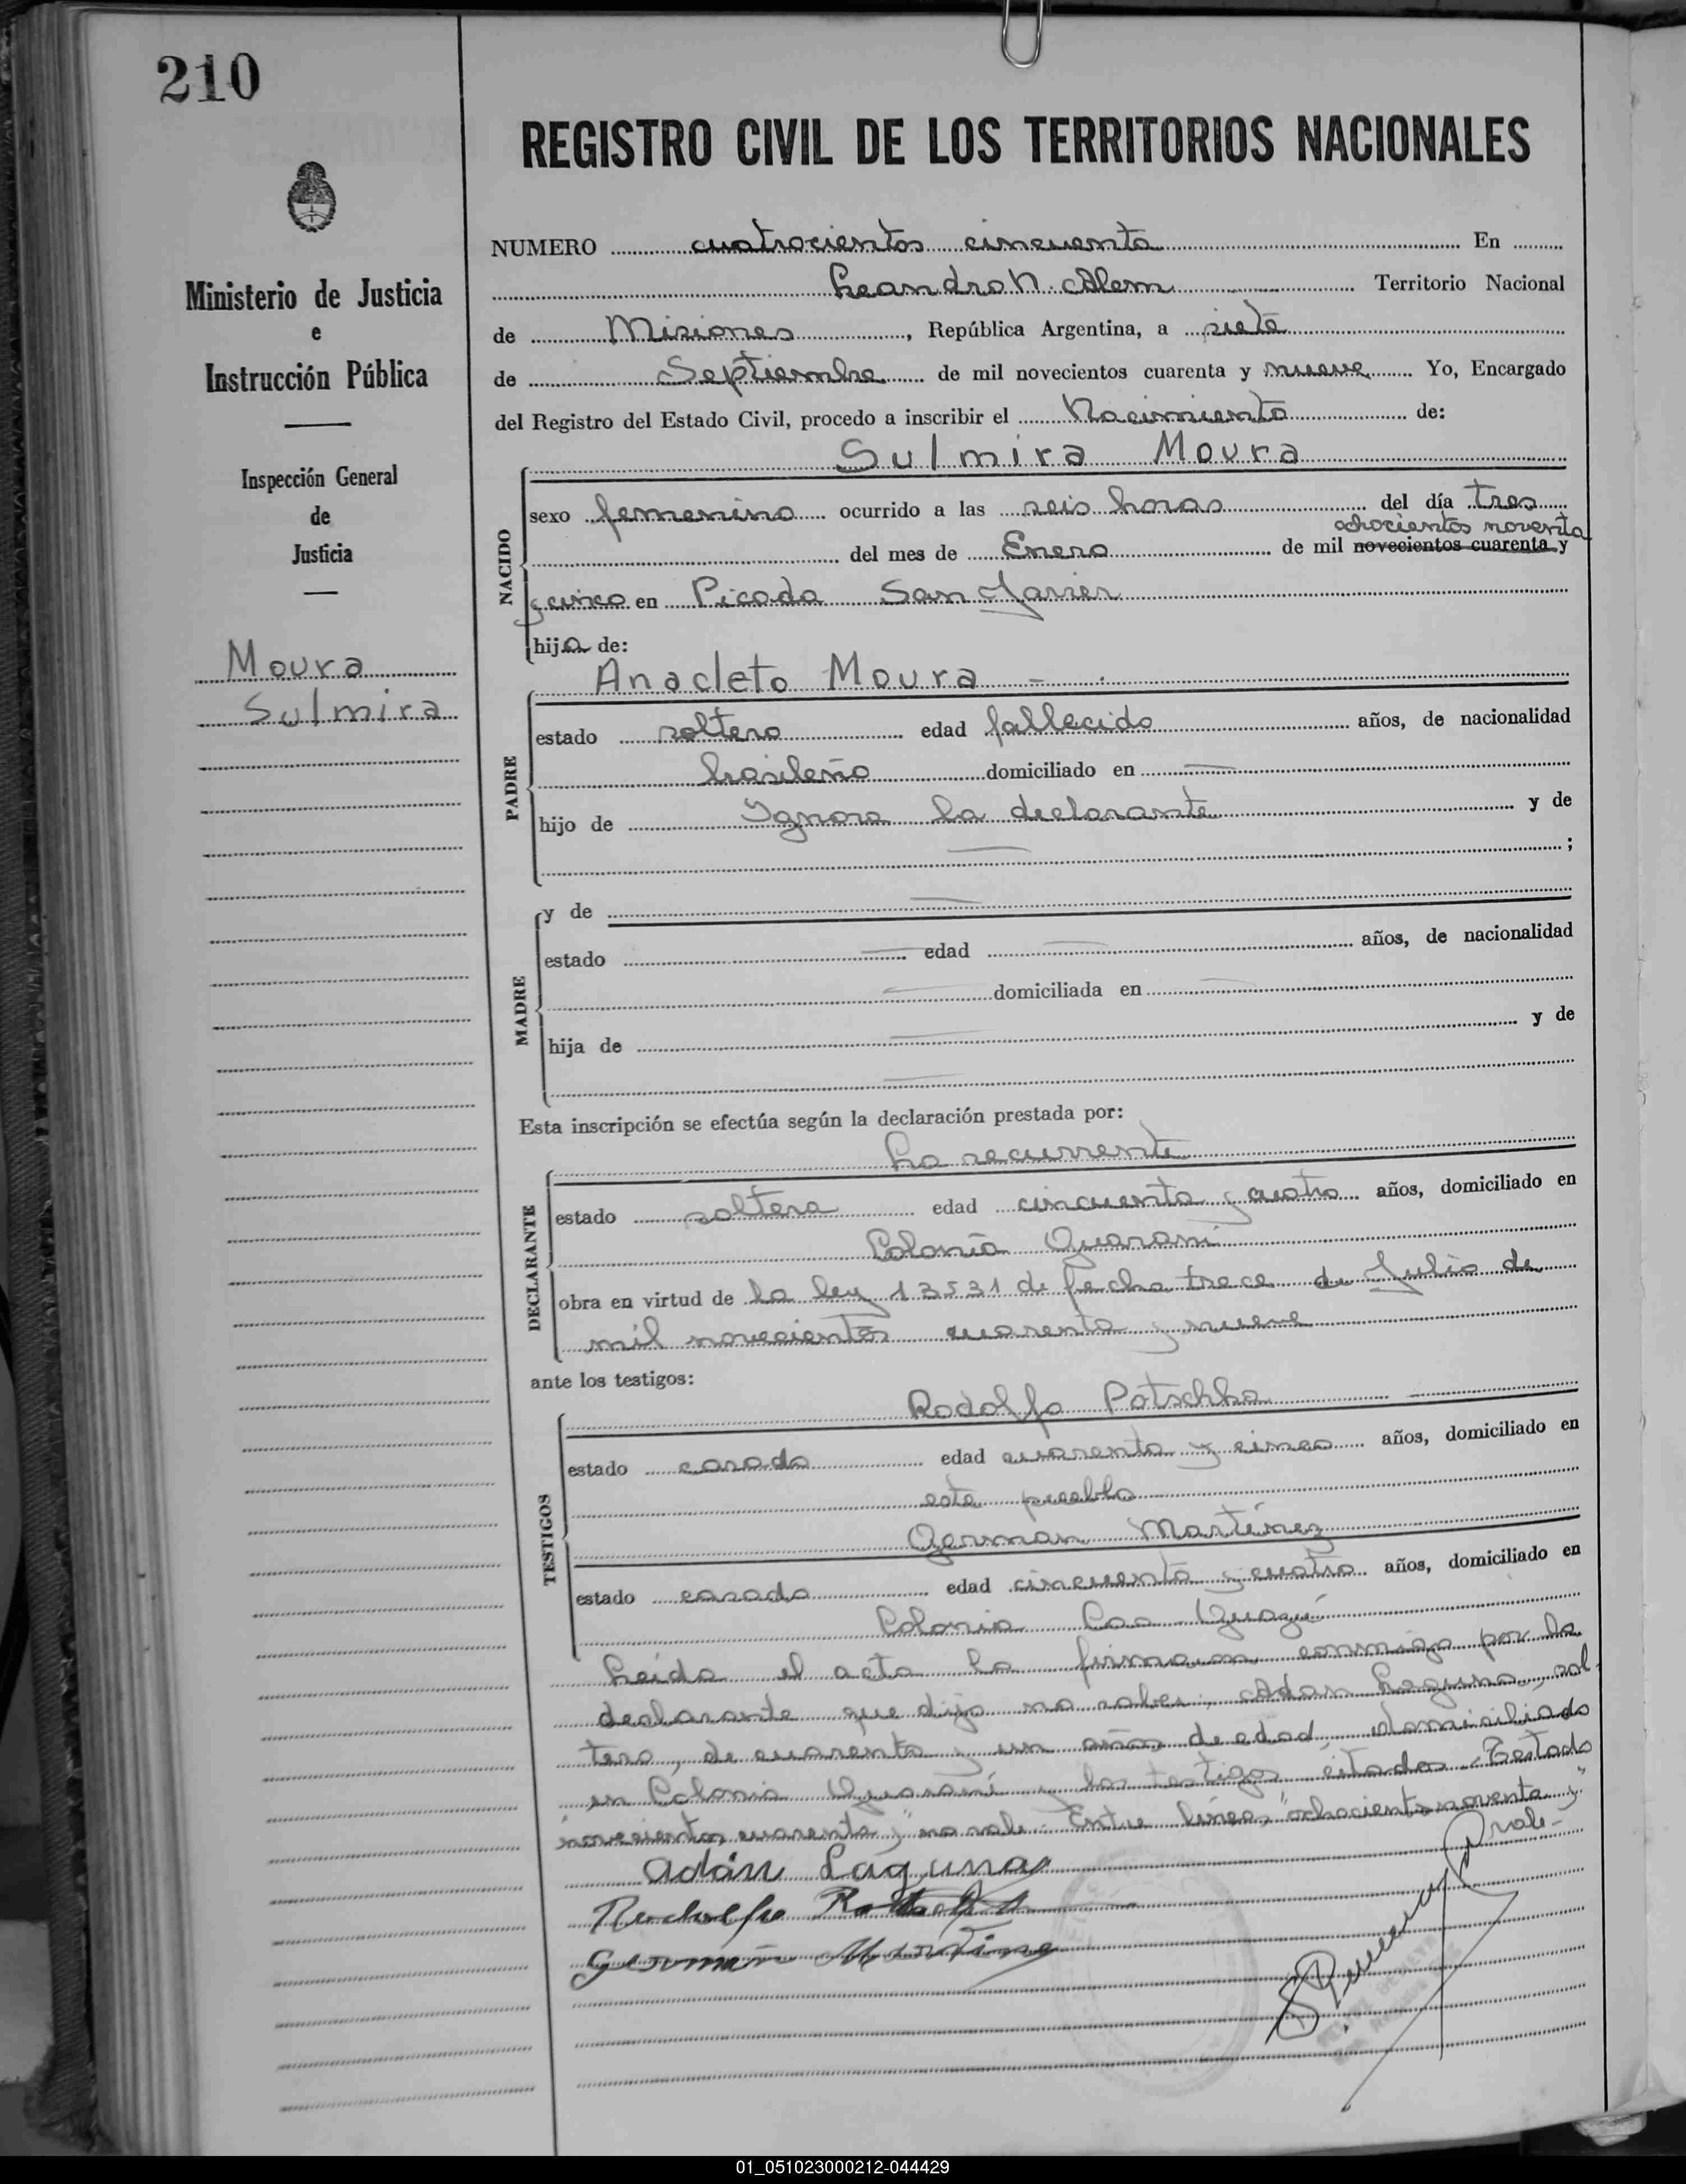 210
REGISTRO CIVIL DE LOS TERRITORIOS NACIONALES
Ministerio de Justicia
e
Instrucción Pública
Inspección General
de
Justicia
Moura
Sulmira
NUMERO cuatrocientos cincuenta En
Leandro N. Alem Territorio Nacional
de Misiones, República Argentina, a siete
de Septiembre de mil novecientos cuarenta y nueve Yo, Encargado
del Registro del Estado Civil, procedo a inscribir el Nacimiento de:
NACIDO
Sulmira Moura
sexo femenino ocurrido a las seis horas del día tres
ochocientos noventa
del mes de Enero de mil novecientos cuarenta y
y cinco en Picada San Javier
hija de:
PADRE
Anacleto Moura
estado soltero edad fallecido años, de nacionalidad
brasileño domiciliado en
hijo de Ignora la declarante y de
;
MADRE
y de
estado edad años, de nacionalidad
domiciliada en
hija de y de
Esta inscripción se efectúa según la declaración prestada por:
DECLARANTE
La recurrente
estado soltera edad cincuenta y cuatro años, domiciliado en
Colonia Guarani
obra en virtud de la ley 13531 de fecha trece de Julio de
mil novecientos cuarenta y nueve
ante los testigos:
TESTIGOS
Rodolfo Potschka
estado casado edad cuarenta y cinco años, domiciliado en
este pueblo
German Martínez
estado casado edad cincuenta y cuatro años, domiciliado en
Colonia Caa Guazú
Leída el acta la firmaron conmigo por la
declarante que dijo no saber, Adan Laguna, sol-
tero, de cuarenta y un años de edad, domiciliado
en Colonia Guaraní y los testigos citados. Testado
"novecientos cuarenta y" no vale. Entre líneas "ochocientos noventa y"
vale-
Adán Laguna
Rodolfo
Germán Martínez